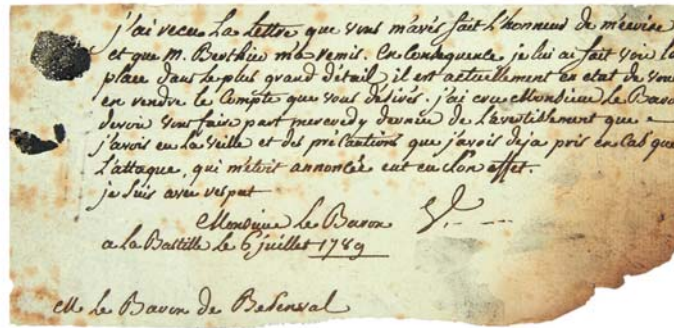 j'ai recu La Lettre que vous m'avés fait L'honneur de m'ecrire
et que M. Berthier m'a remis. En Consequence je lui ai fait voir la
place dans le plus grand détail, il est actuellement en etat de vous
en rendre le Compte que vous désirés. j'ai cru Monsieur le Baron
devoir vous faire part mercredy dernier de L'avertissement que
j'avois eu La veille et des précautions que j'avois deja pris en Cas que
L'attaque, qui m'etoit annoncée eut eu son effet.
je suis avec respect
Monsieur Le Baron
a la Bastille le 6 juillet 1789
M. le Baron de Besenval